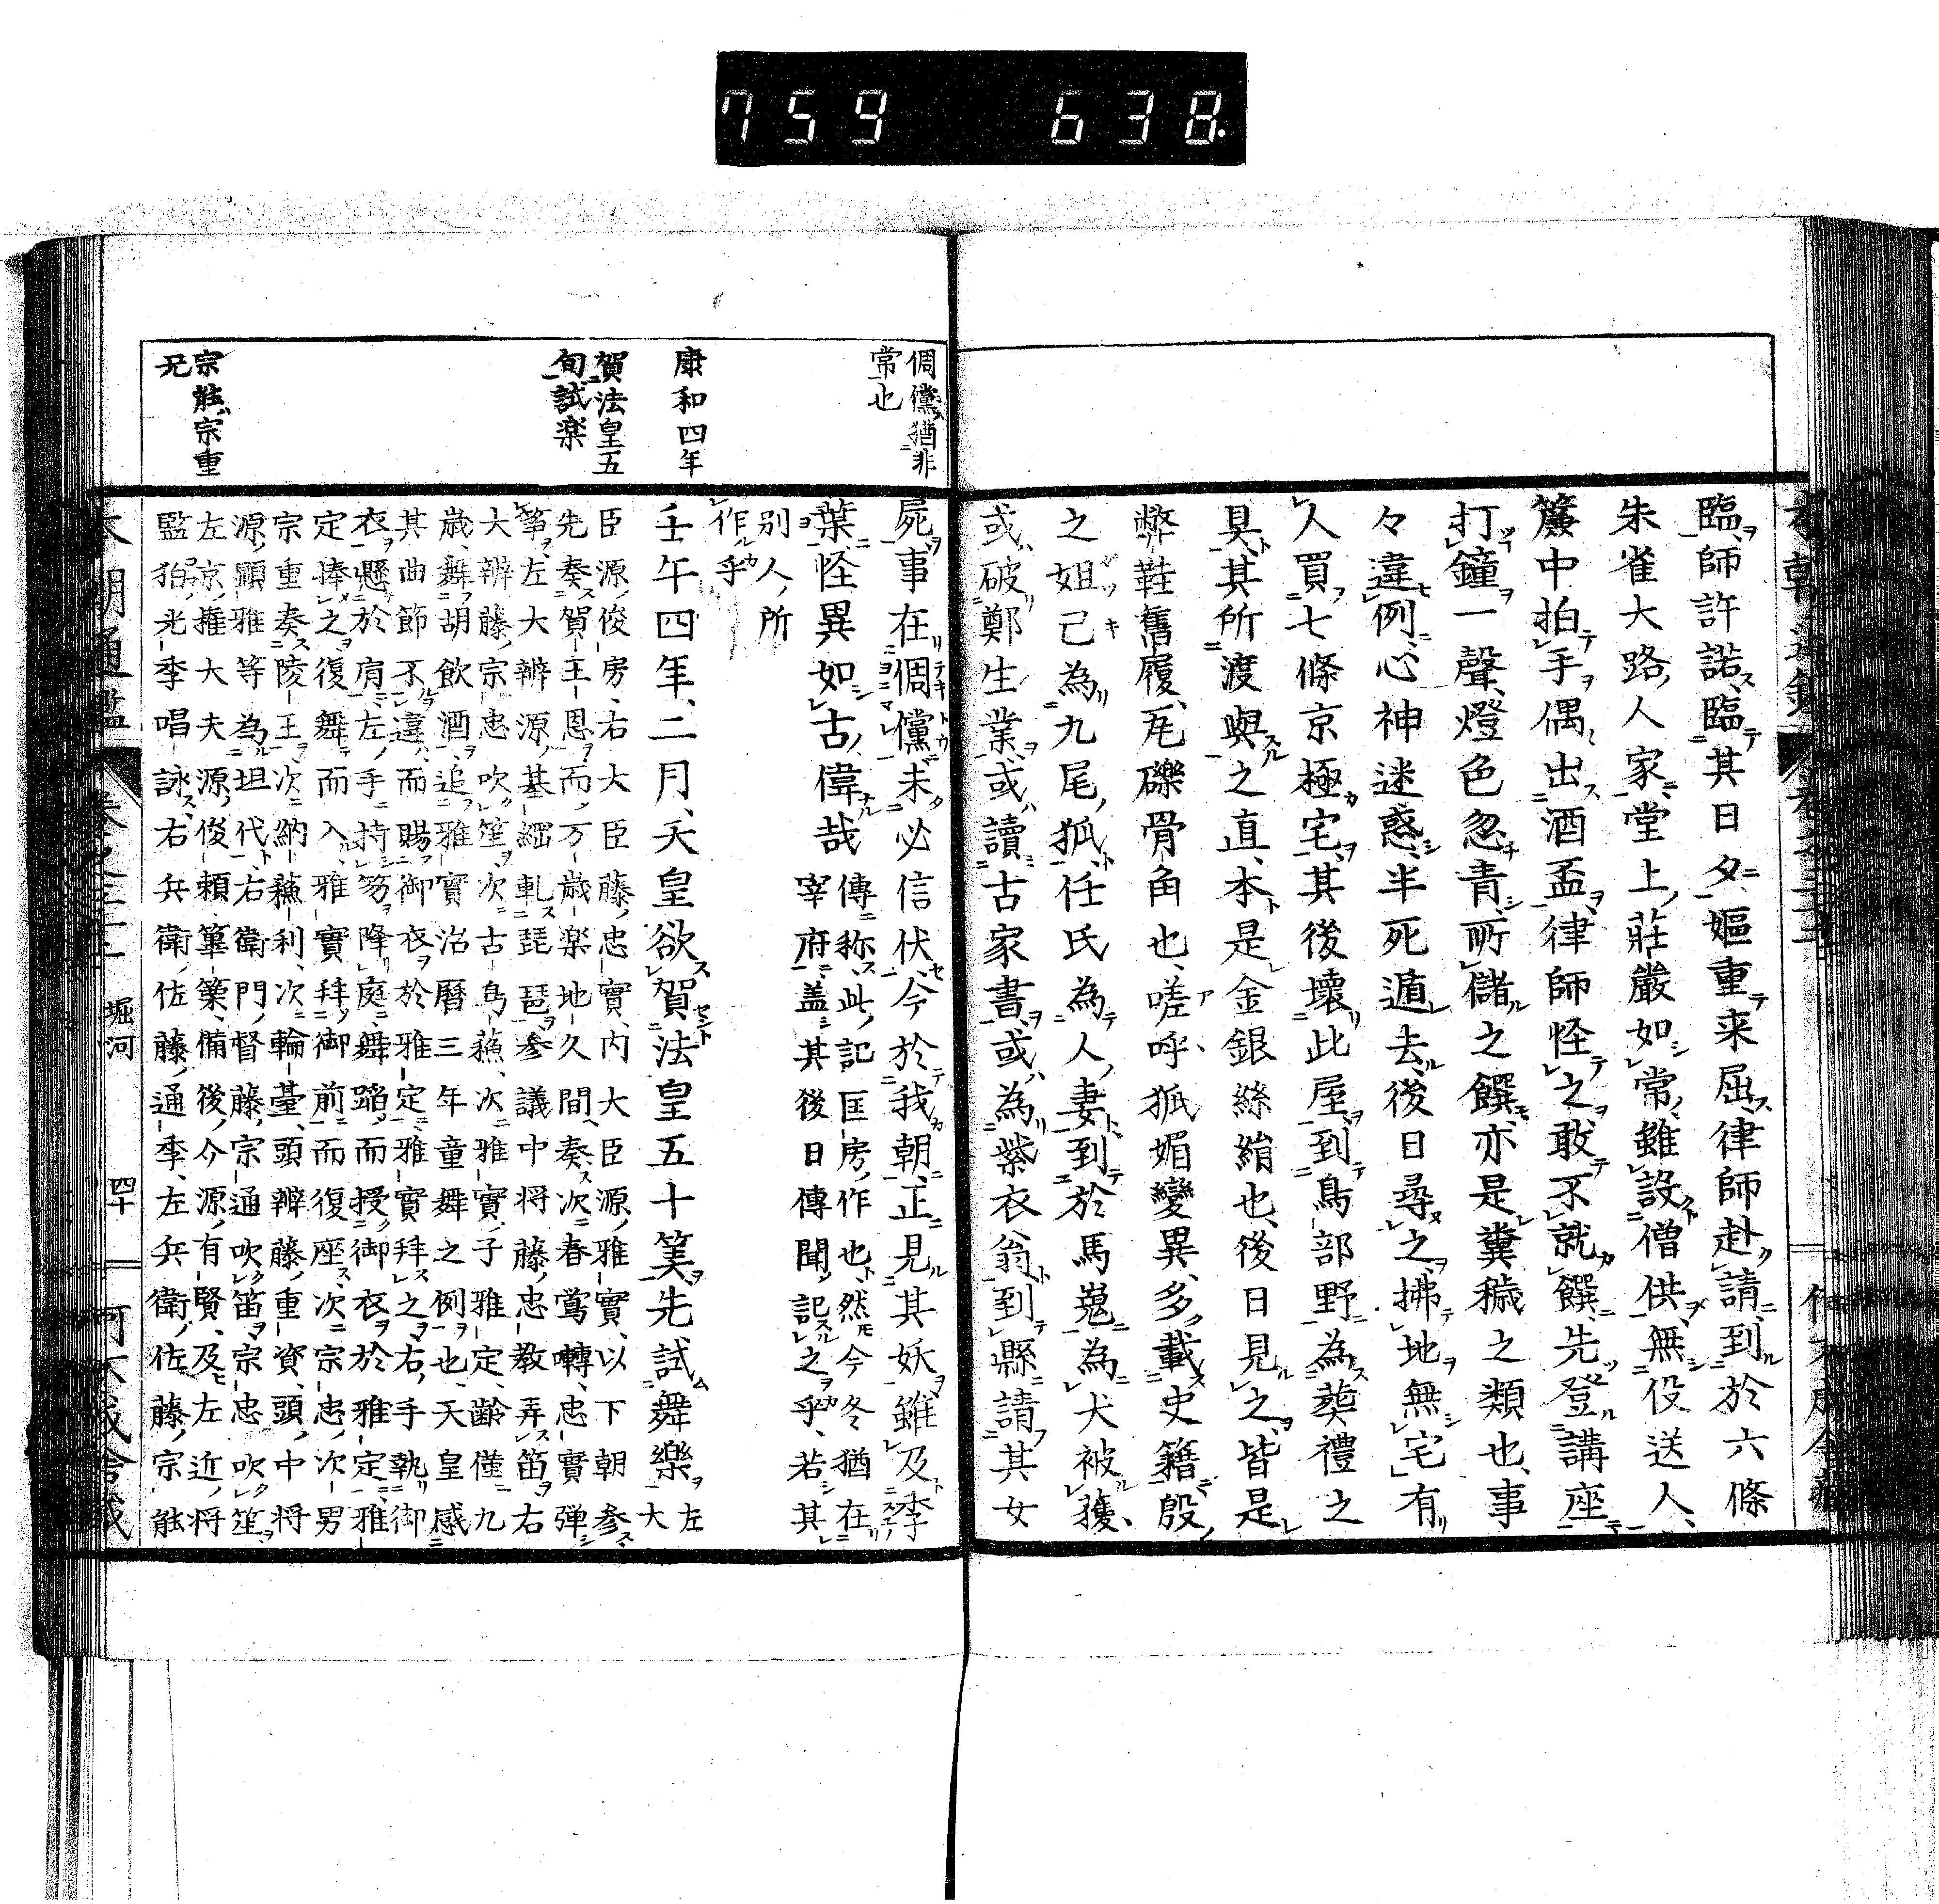 759 638.
臨師許諾臨其日夕嫗重来屈律師赴請到於六條
朱雀大路人家堂上莊嚴如常雖設僧供無役送人
簾中拍手偶出酒盃律師怪之敢不就饌先登講座
打鐘一聲燈色忽青所儲之饌亦是糞穢之類也事
々違例心神迷惑半死遁去後日尋之拂地無宅有
人買七條京極宅其後壊此屋到鳥部野為葬禮之
具其所渡與之直本是金銀絲絹也後日見之皆是
弊鞋舊履瓦礫骨角也嗟呼狐媚變異多載史籍殷
之妲己為九尾狐任氏為人妻到於馬嵬為犬被獲
或破鄭生業或讀古家書或為紫衣翁到縣請其女
倜儻猶非
常也
屍事在倜儻未必信伏今於我朝正見其妖雖及李
葉怪異如古偉哉
傳称此記匡房作也然今冬猶在
宰府蓋其後日傳聞記之乎若其
別人所
作乎
康和四年
壬午四年二月天皇欲賀法皇五十筭先試舞樂
左
大
賀法皇五
旬試楽
臣源俊房右大臣藤忠實内大臣源雅實以下朝参
先奏賀王恩而万歳楽地久間奏次春鴬囀忠實弾
筝左大辨源基綱軋琵琶参議中将藤忠教弄笛右
大辨藤宗忠吹笙次古鳥蘓次雅實子雅定齢僅九
歳舞胡飲酒追雅實治暦三年童舞之例也天皇感
其曲節不違而賜御衣於雅定雅實拜之右手執御
衣懸於肩左手持笏降庭舞蹈而授御衣於雅定雅
定捧之復舞而入雅實拜御前而復座次宗忠次男
宗重奏陵王次納蘓利次輪臺頭辨藤重資頭中将
源顯雅等為垣代右衛門督藤宗通吹笛宗忠吹笙
左京權大夫源俊頼篳篥備後今源有賢及左近将
監狛光季唱詠右兵衛佐藤通季左兵衛佐藤宗能
宗能宗重
兄
本朝通鑑 卷之三十 堀河 四十